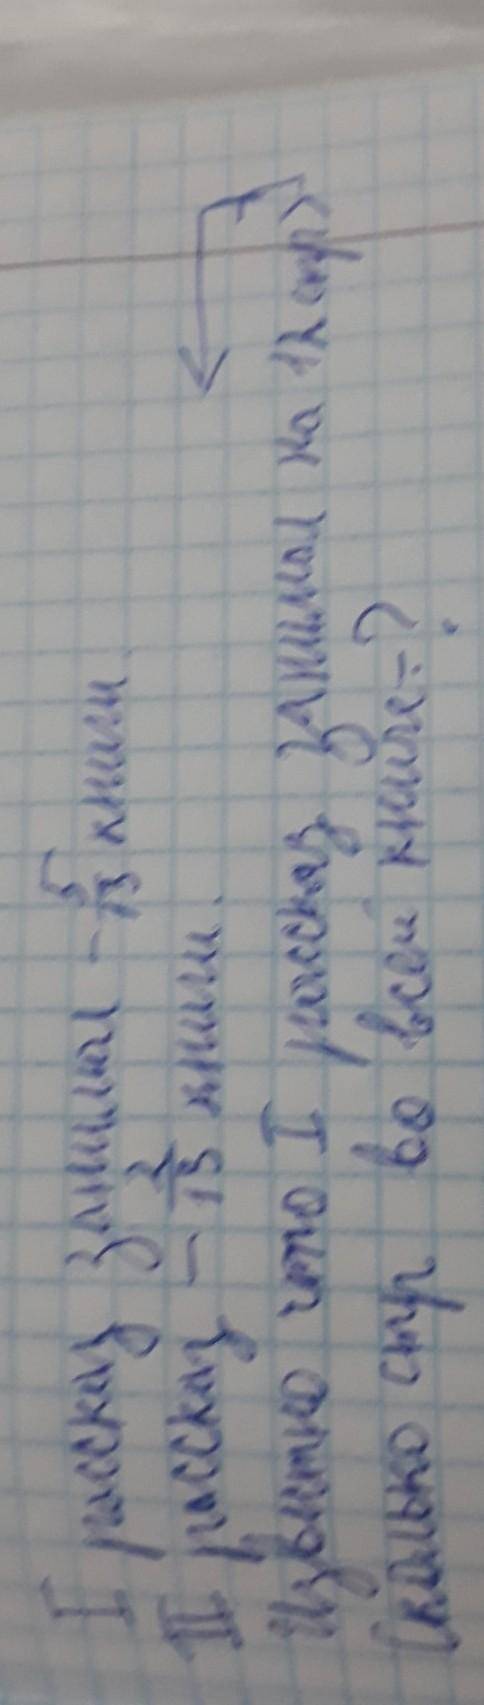 I рассказ занимал - 5/13 книги.
II рассказ - 2/13 книги.
Известно что I рассказ занимал на 12 стр >
Сколько стр во всей книге - ?